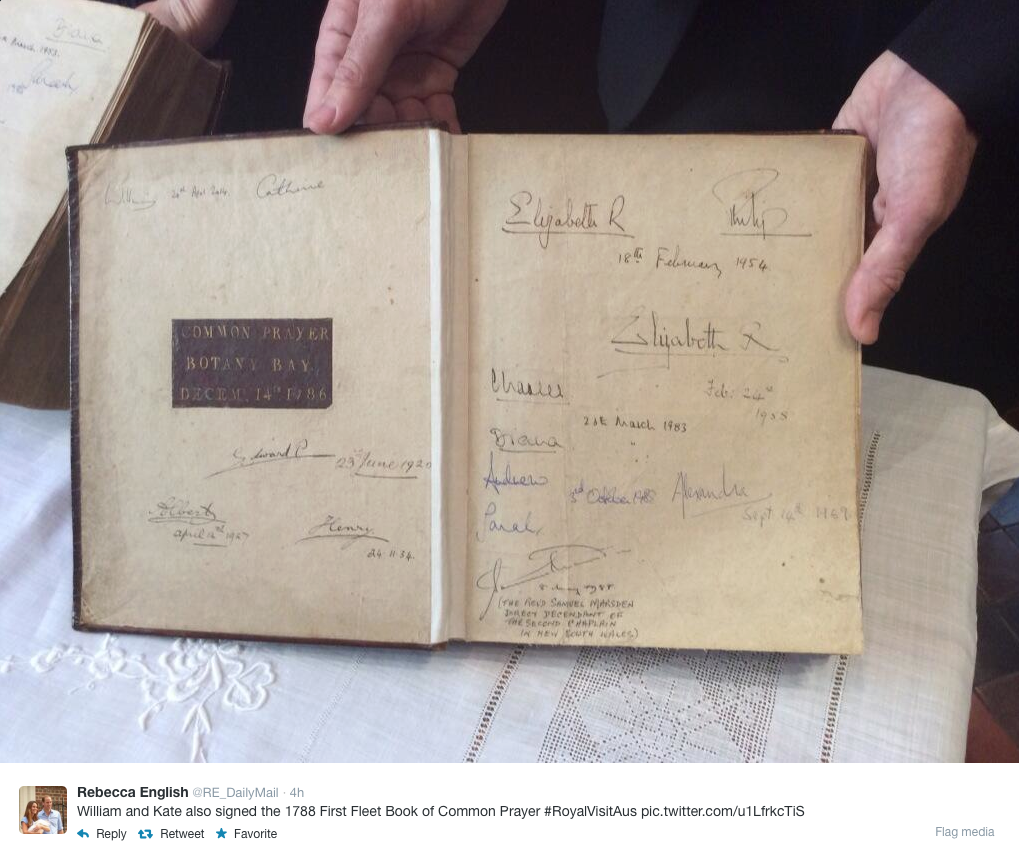 Diana
March 1983.
Sarah
William 20th April 2014 Catherine
COMMON PRAYER
BOTANY BAY
DECEM. 14th 1786
Edward P
23rd June 1920
Albert
April
Henry
24.11.34.
Elizabeth R Philip
18th February 1954
Elizabeth R
Feb: 24th
1958
Charles
28th March 1983
Diana "
Andrew
3rd October 1988
Alexandra
Sept 14th
Sarah
(THE REVD SAMUEL MARSDEN
DIRECT DECENDANT OF
THE SECOND CHAPLAIN
IN NEW SOUTH WALES)
Rebecca English @RE_DailyMail · 4h
William and Kate also signed the 1788 First Fleet Book of Common Prayer #RoyalVisitAus pic.twitter.com/u1LfrkcTiS
Reply Retweet Favorite
Flag media